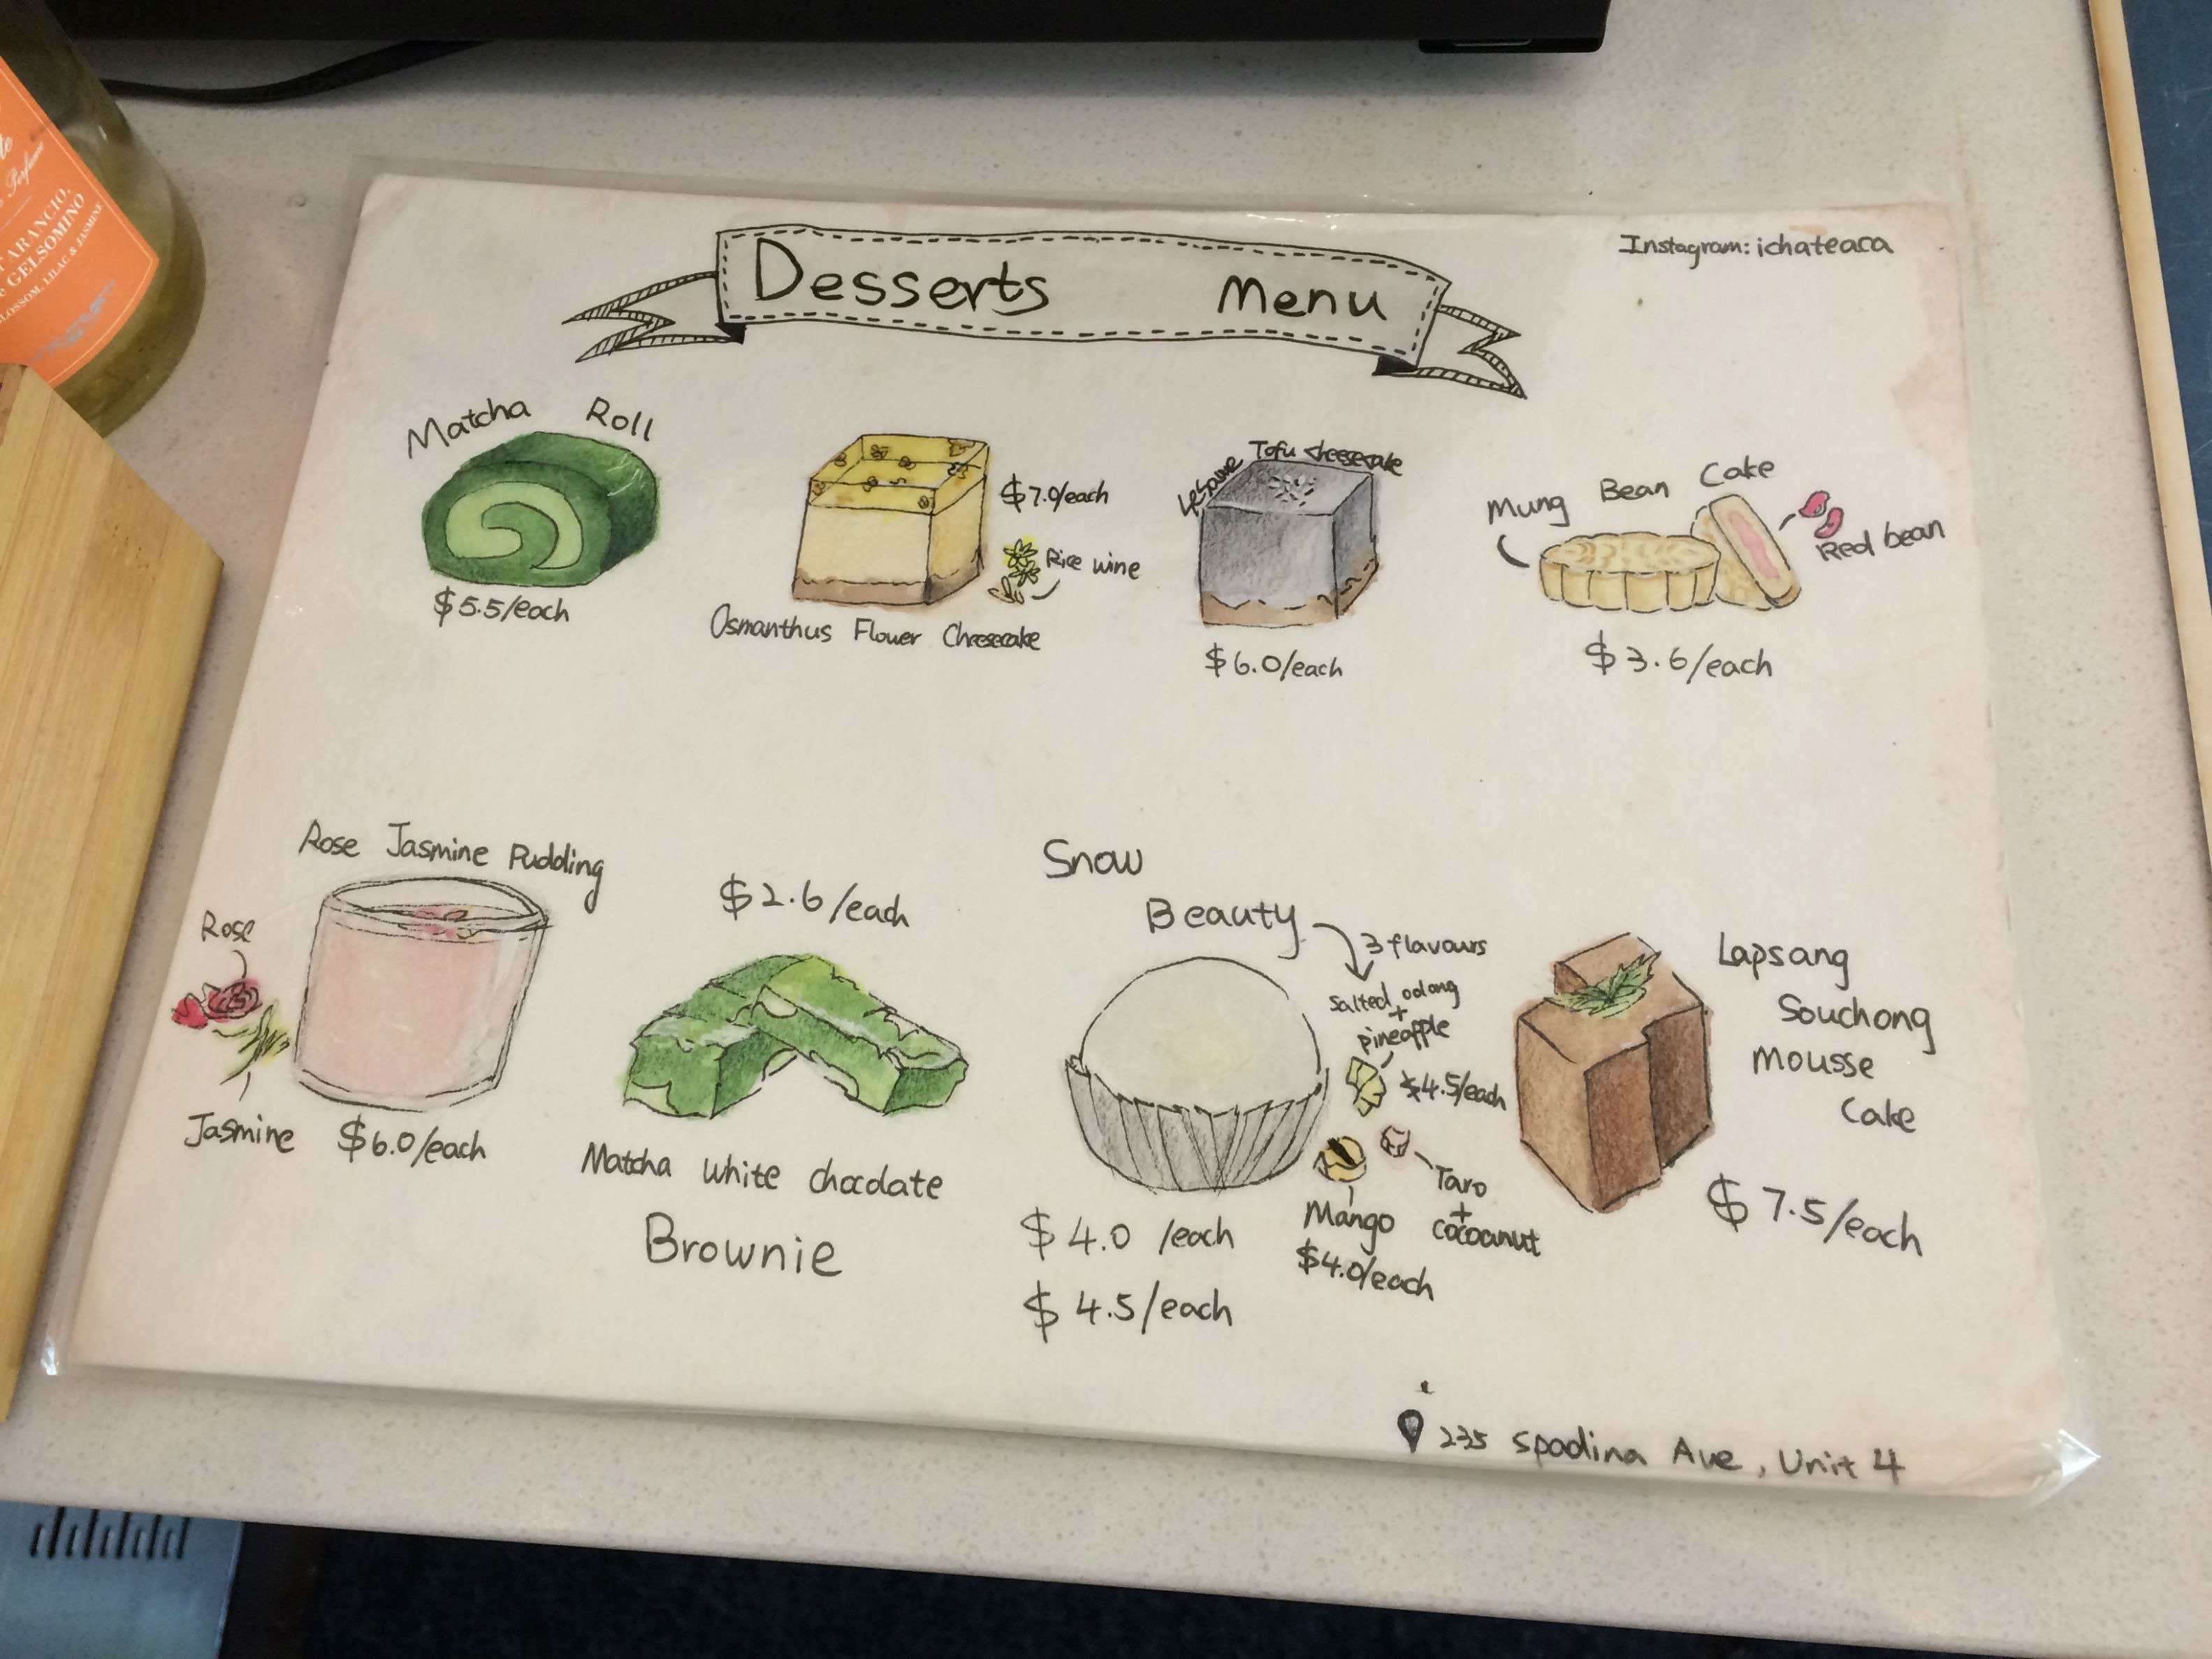 te
Perfume
T ARANCIO,
e GELSOMINO
LOSSOM, LILAC & JASMINE
Desserts Menu
Instagram: ichateaca
Matcha Roll
$5.5/each
$7.0/each
Rice wine
Osmanthus Flower Cheesecake
Tofu Cheesecake
$6.0/each
Mung Bean Cake
Red bean
$3.6/each
Rose Jasmine Pudding
Rose
Jasmine
$6.0/each
$2.6/each
Matcha White Chocolate
Brownie
Snow
Beauty
3 flavours
Salted oolong
+
pineapple
$4.5/each
Mango
$4.0/each
Taro
+
cocoanut
$4.0/each
$4.5/each
Lapsang
Souchong
Mousse
Cake
$7.5/each
235 Spadina Ave, Unit 4